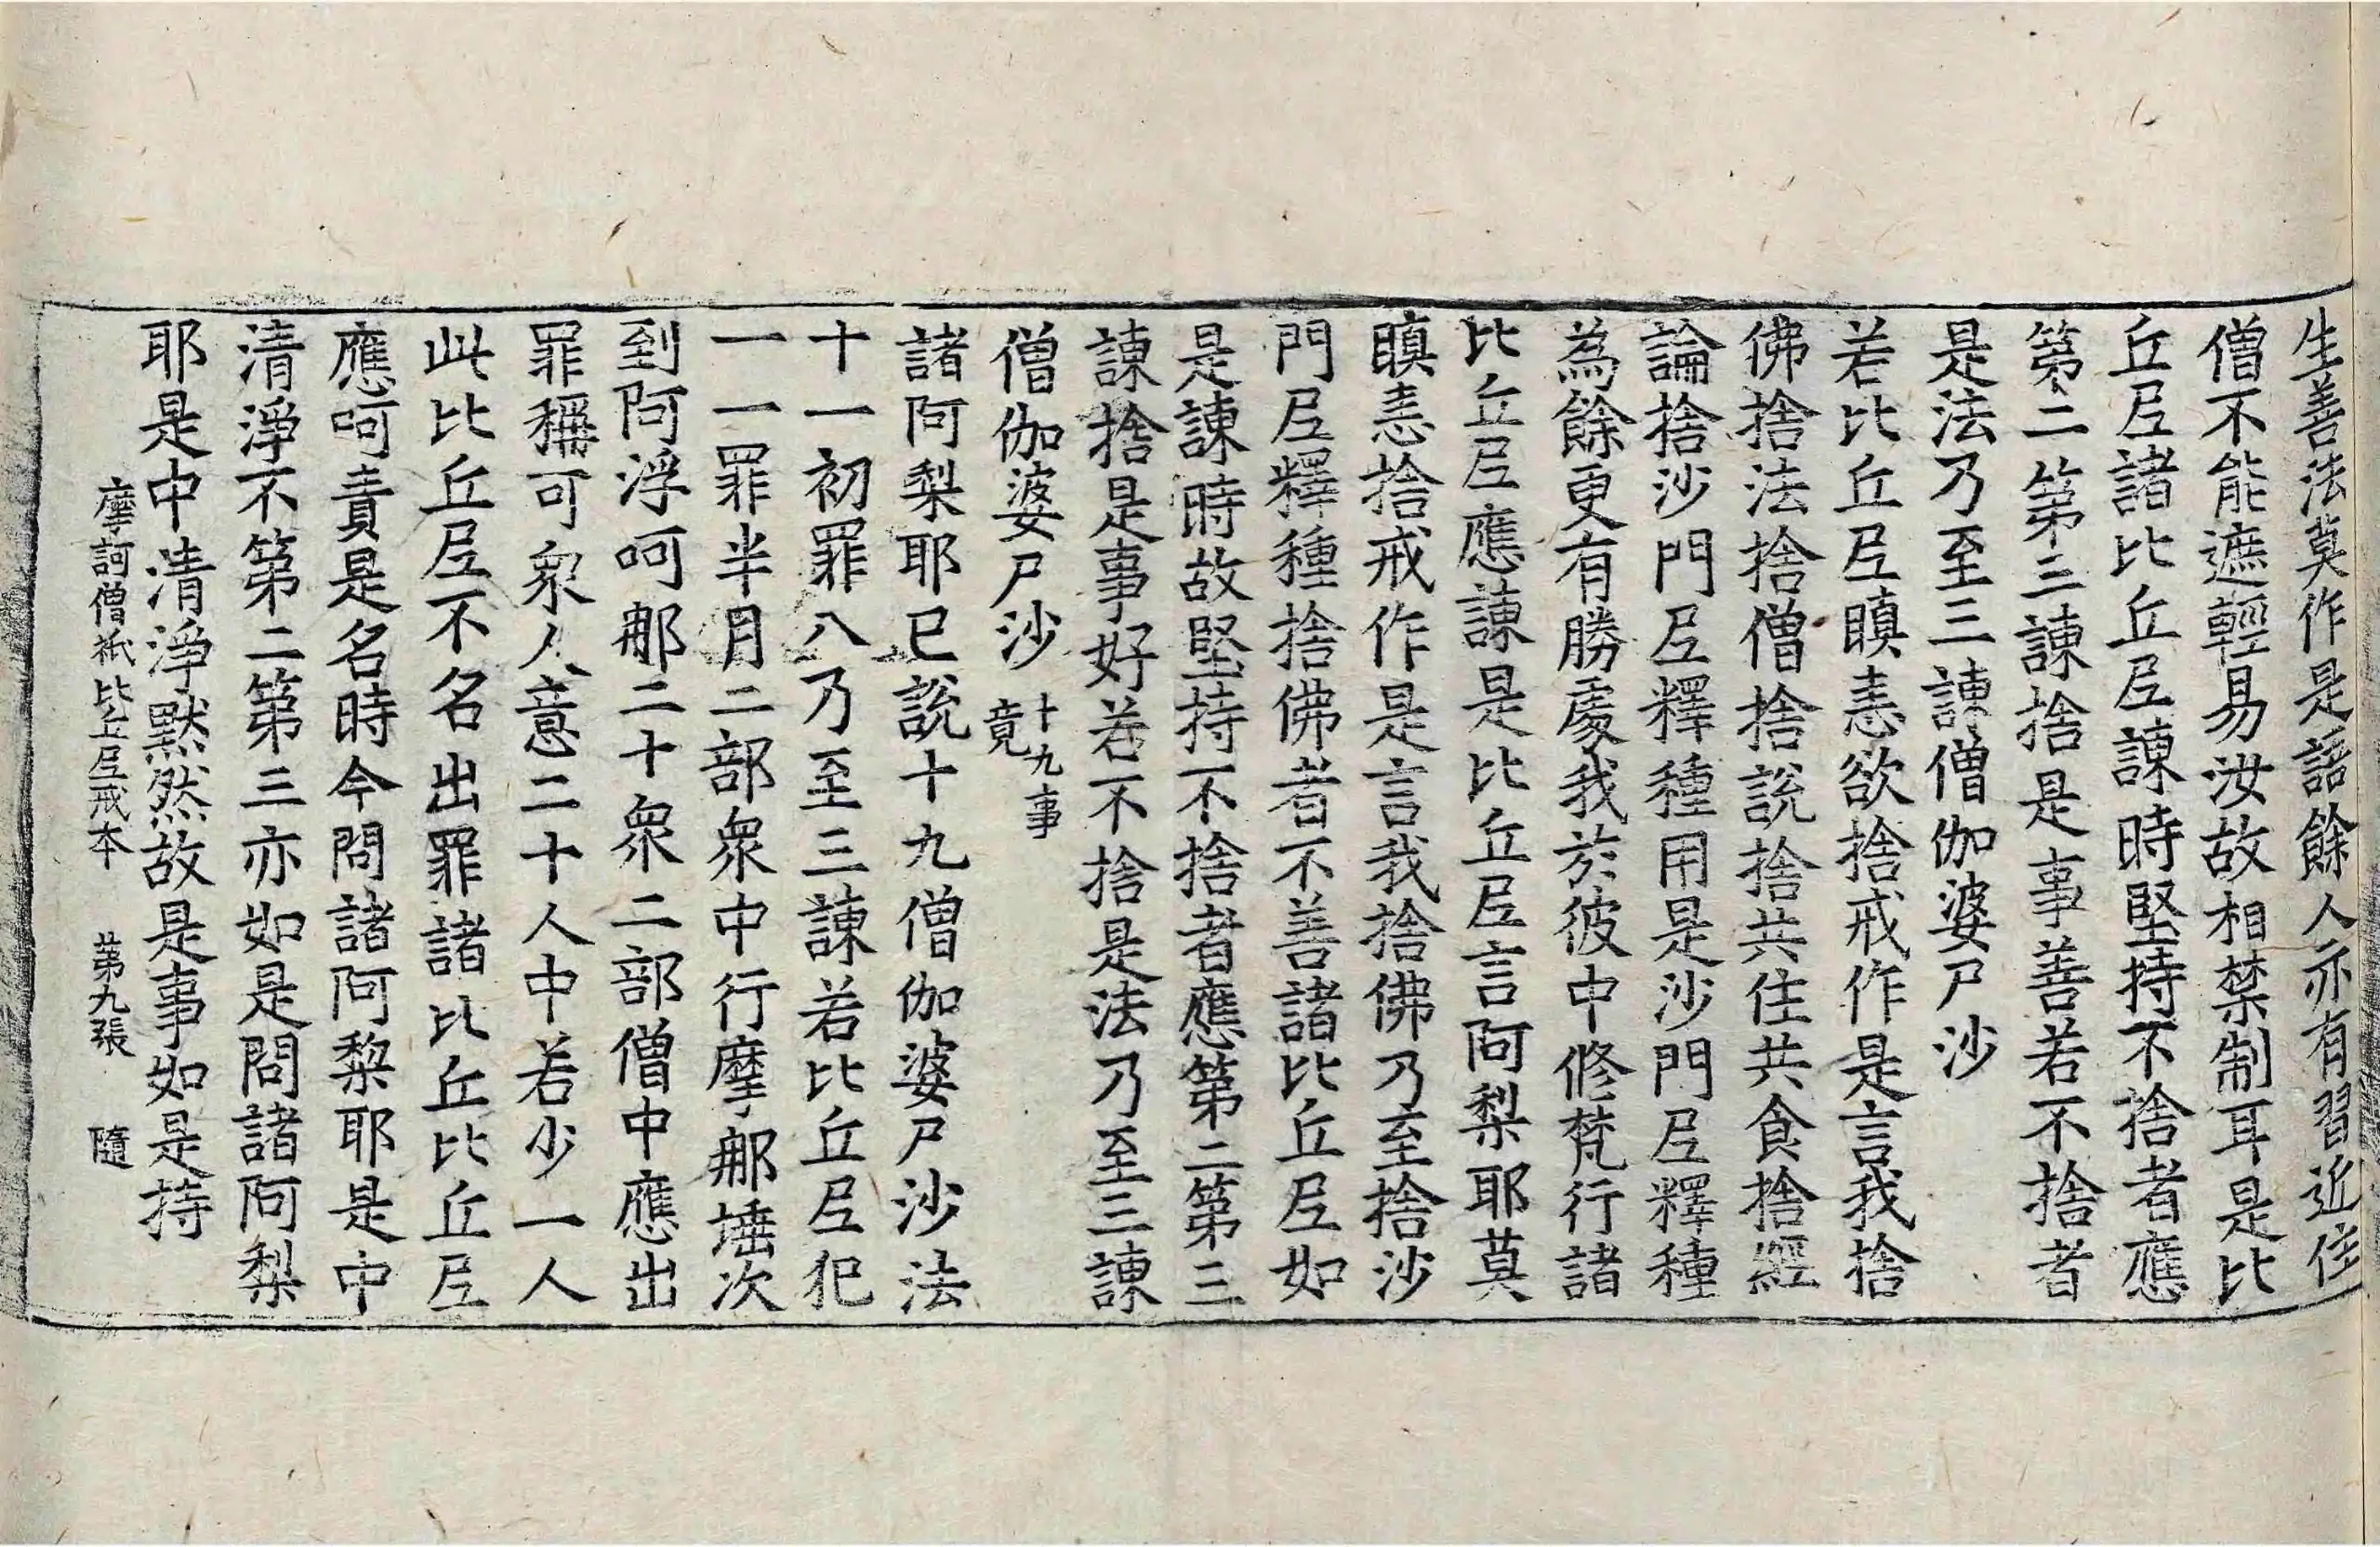 生善法莫作是語餘人亦有習近住
僧不能遮輕易汝故相禁制耳是比
丘尼諸比丘尼諫時堅持不捨者應
第二第三諫捨是事善若不捨者
是法乃至三諫僧伽婆尸沙
若比丘尼瞋恚欲捨戒作是言我捨
佛捨法捨僧捨說捨共住共食捨經
論捨沙門尼釋種用是沙門尼釋種
為餘更有勝處我於彼中修梵行諸
比丘尼應諫是比丘尼言阿梨耶莫
瞋恚捨戒作是言我捨佛乃至捨沙
門尼釋種捨佛者不善諸比丘尼如
是諫時故堅持不捨者應第二第三
諫捨是事好若不捨是法乃至三諫
僧伽婆尸沙十九事竟
諸阿梨耶已說十九僧伽婆尸沙法
十一初罪八乃至三諫若比丘尼犯
一一罪半月二部眾中行摩那埵次
到阿浮呵那二十眾二部僧中應出
罪稱可眾人意二十人中若少一人
此比丘尼不名出罪諸比丘比丘尼
應呵責是名時今問諸阿梨耶是中
清淨不第二第三亦如是問諸阿梨
耶是中清淨默然故是事如是持
摩訶僧祇比丘尼戒本 第九張 隨